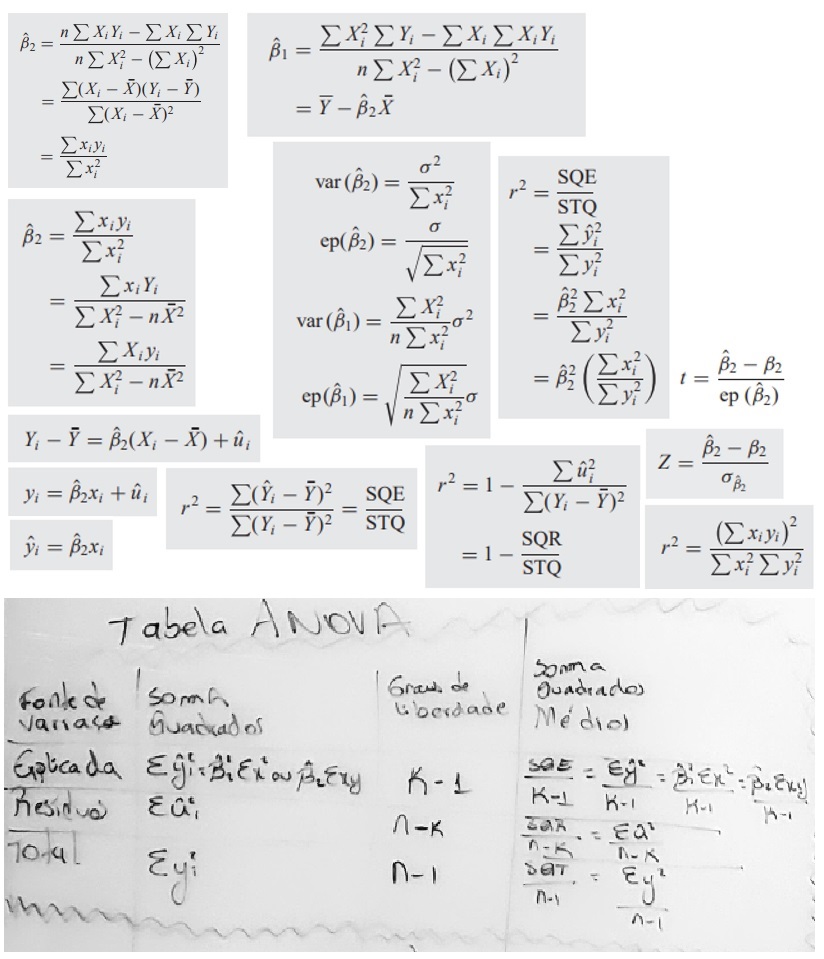 β̂₂ = (n ∑ XᵢYᵢ − ∑ Xᵢ ∑ Yᵢ) / (n ∑ Xᵢ² − (∑ Xᵢ)²)
= ∑(Xᵢ − X̄)(Yᵢ − Ȳ) / ∑(Xᵢ − X̄)²
= ∑ xᵢyᵢ / ∑ xᵢ²
β̂₁ = (∑ Xᵢ² ∑ Yᵢ − ∑ Xᵢ ∑ XᵢYᵢ) / (n ∑ Xᵢ² − (∑ Xᵢ)²)
= Ȳ − β̂₂X̄
β̂₂ = ∑ xᵢyᵢ / ∑ xᵢ²
= ∑ xᵢYᵢ / (∑ Xᵢ² − nX̄²)
= ∑ Xᵢyᵢ / (∑ Xᵢ² − nX̄²)
var (β̂₂) = σ² / ∑ xᵢ²
ep(β̂₂) = σ / √(∑ xᵢ²)
var (β̂₁) = (∑ Xᵢ² / n ∑ xᵢ²) σ²
ep(β̂₁) = √(∑ Xᵢ² / n ∑ xᵢ²) σ
r² = SQE / STQ
= ∑ ŷᵢ² / ∑ yᵢ²
= β̂₂² ∑ xᵢ² / ∑ yᵢ²
= β̂₂² (∑ xᵢ² / ∑ yᵢ²)
t = (β̂₂ − β₂) / ep (β̂₂)
Yᵢ − Ȳ = β̂₂(Xᵢ − X̄) + ûᵢ
yᵢ = β̂₂xᵢ + ûᵢ
ŷᵢ = β̂₂xᵢ
r² = ∑(Ŷᵢ − Ȳ)² / ∑(Yᵢ − Ȳ)² = SQE / STQ
r² = 1 − ∑ ûᵢ² / ∑(Yᵢ − Ȳ)²
= 1 − SQR / STQ
Z = (β̂₂ − β₂) / σ_β̂₂
r² = (∑ xᵢyᵢ)² / ∑ xᵢ² ∑ yᵢ²
Tabela ANOVA
Fonte de Variação
Soma Quadrados
Graus de Liberdade
Soma Quadrados Médios
Explicada Σŷᵢ² = β̂₂²Σx² ou β̂₂Σxy K-1 SQE/K-1 = Σŷ²/K-1 = β̂₂²Σx²/K-1 = β̂₂Σxy/K-1
Resíduos Σûᵢ² n-K SQR/n-K = Σû²/n-K
Total Σyᵢ² n-1 SQT/n-1 = Σy²/n-1